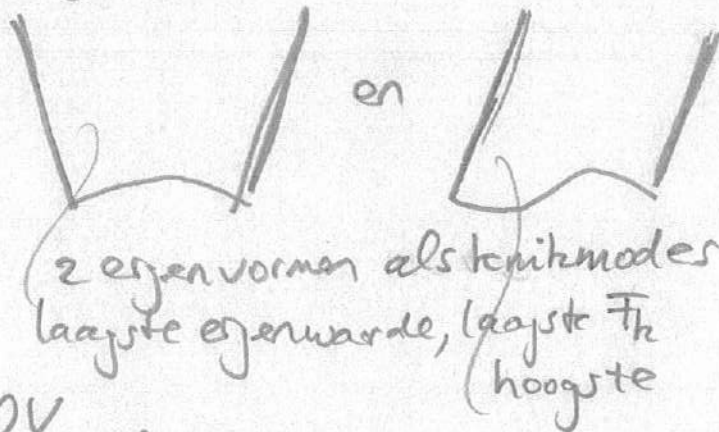 en
2 eigenvormen als knikmodes
laagste eigenwaarde, laagste Fk
hoogste